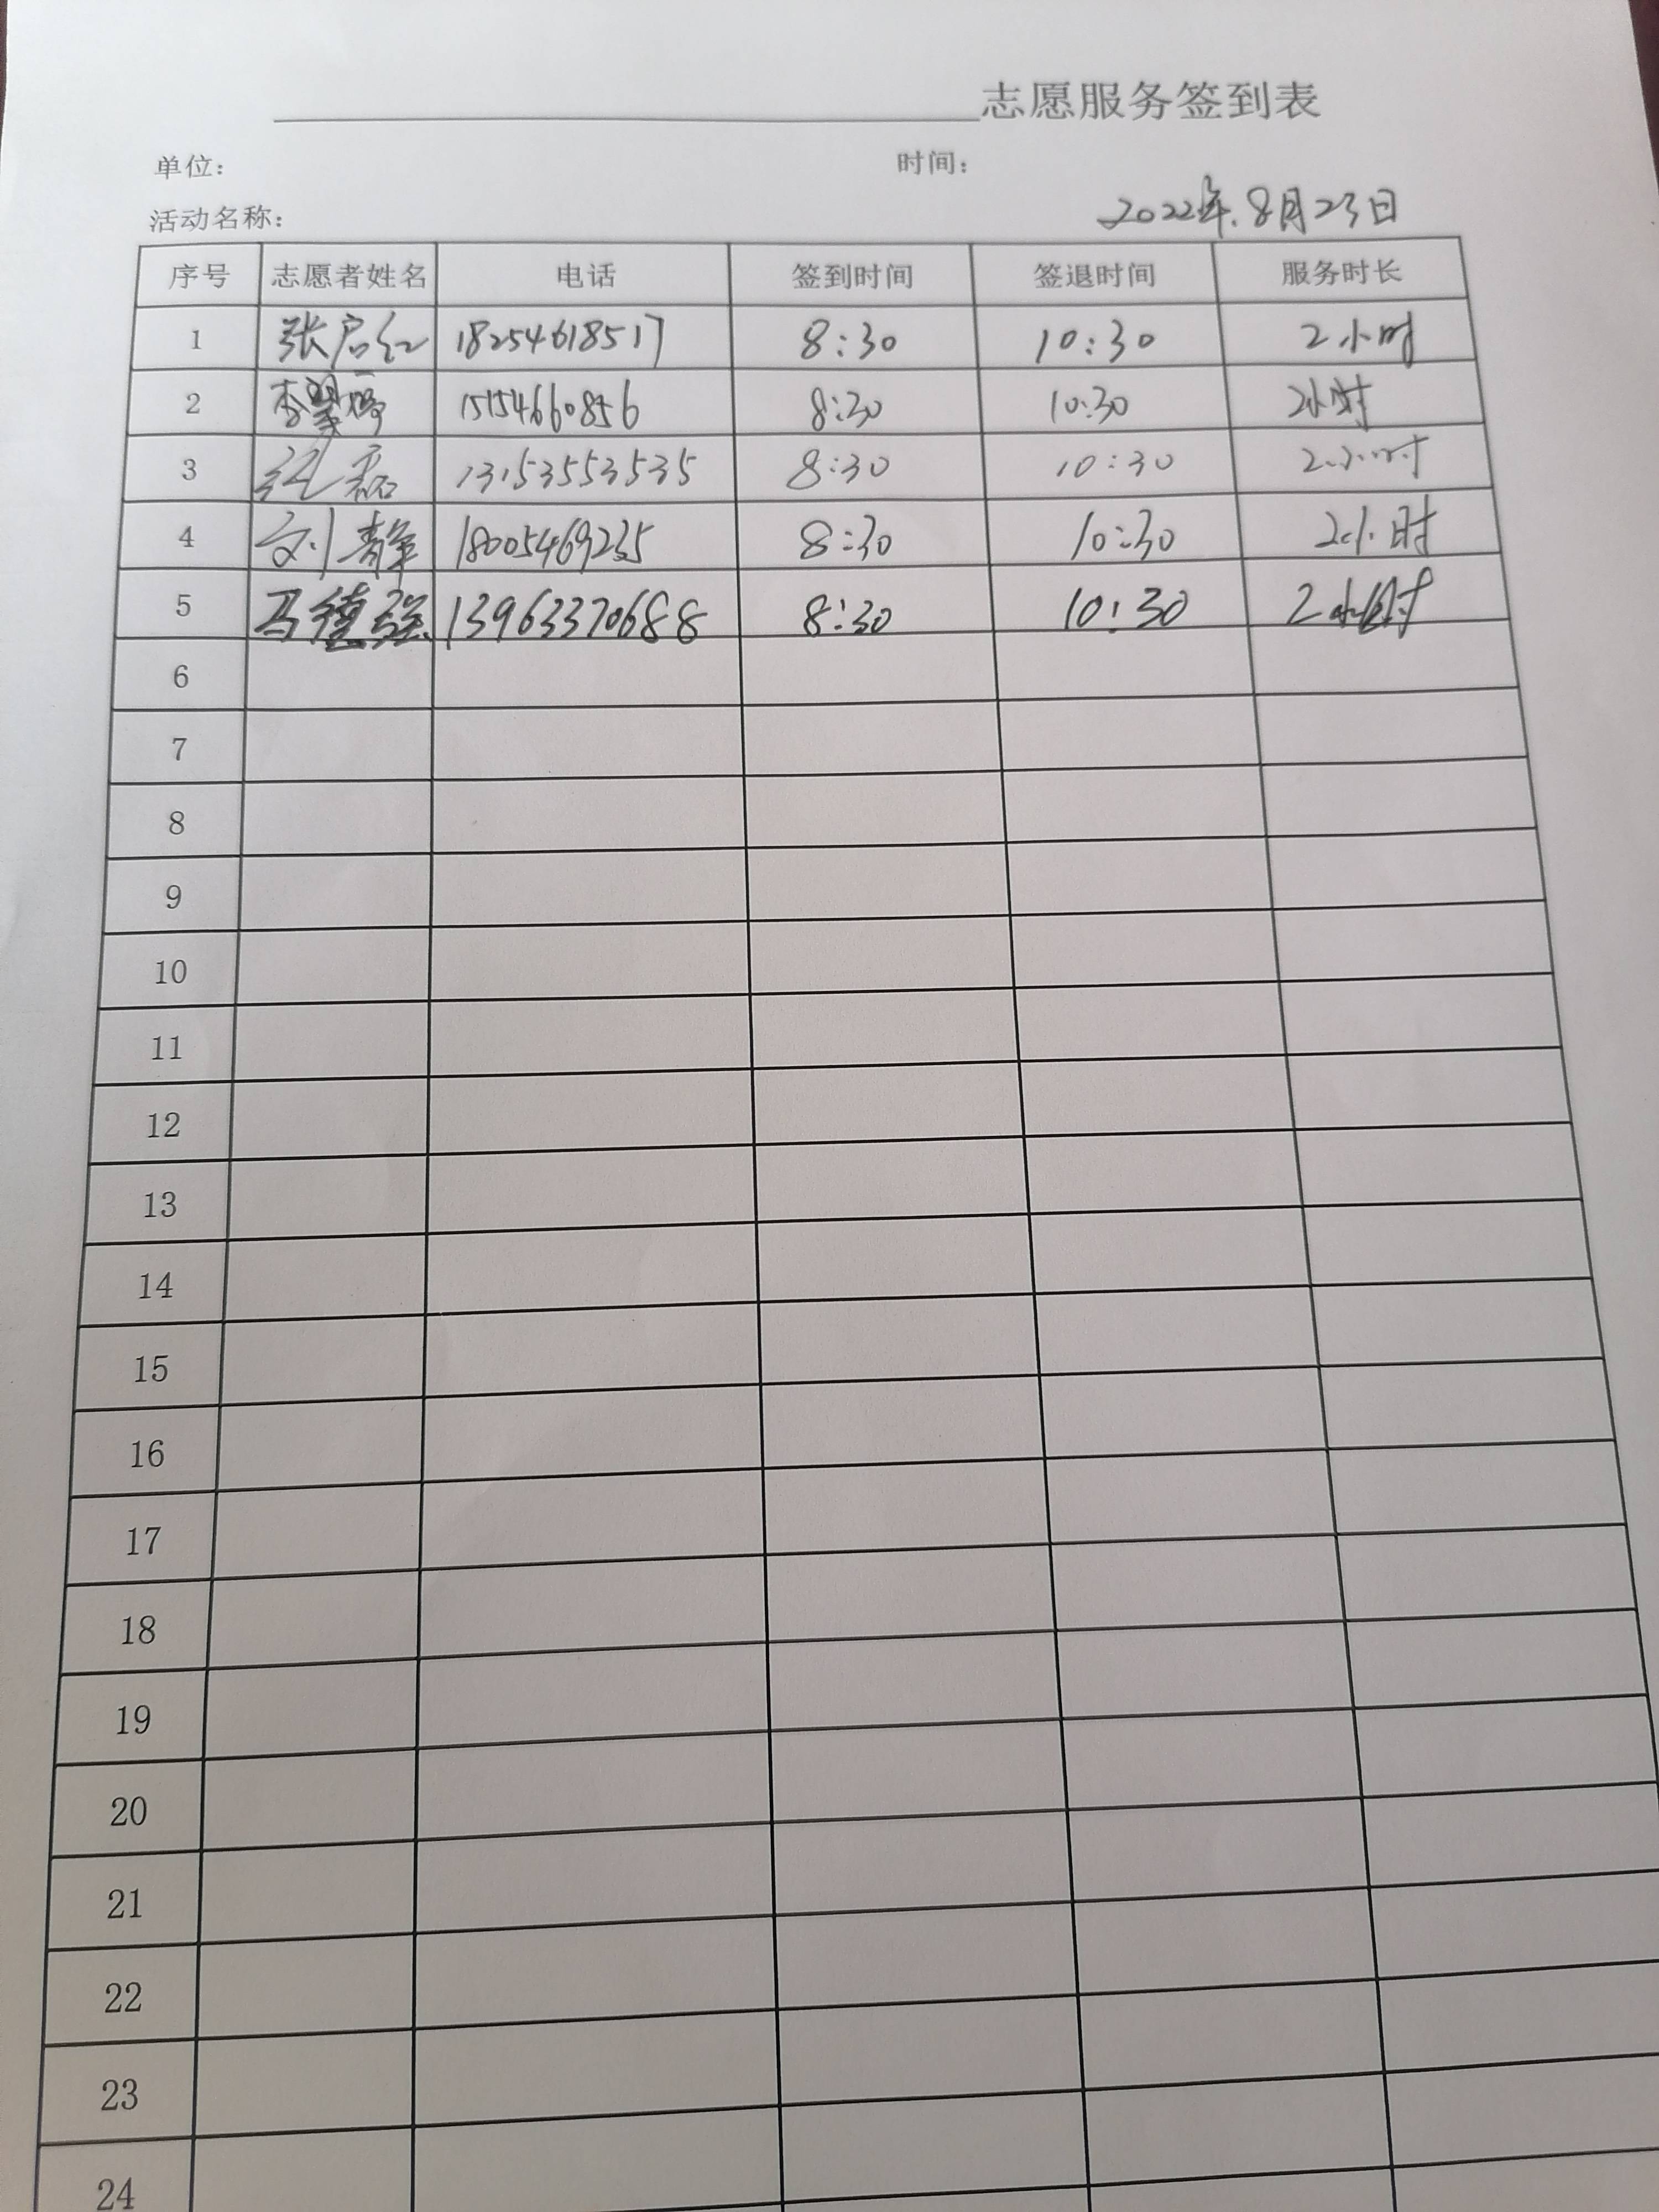 志愿服务签到表
单位： 时间：
2022年.8月23日
活动名称：
序号 志愿者姓名 电话 签到时间 签退时间 服务时长
1 张启红 18254618517 8:30 10:30 2小时
2 李 15154660856 8:30 10:30 2小时
3 13153553535 8:30 10:30 2小时
4 刘静 18005469235 8:30 10:30 2小时
5 马德强 13963370688 8:30 10:30 2小时
6
7
8
9
10
11
12
13
14
15
16
17
18
19
20
21
22
23
24